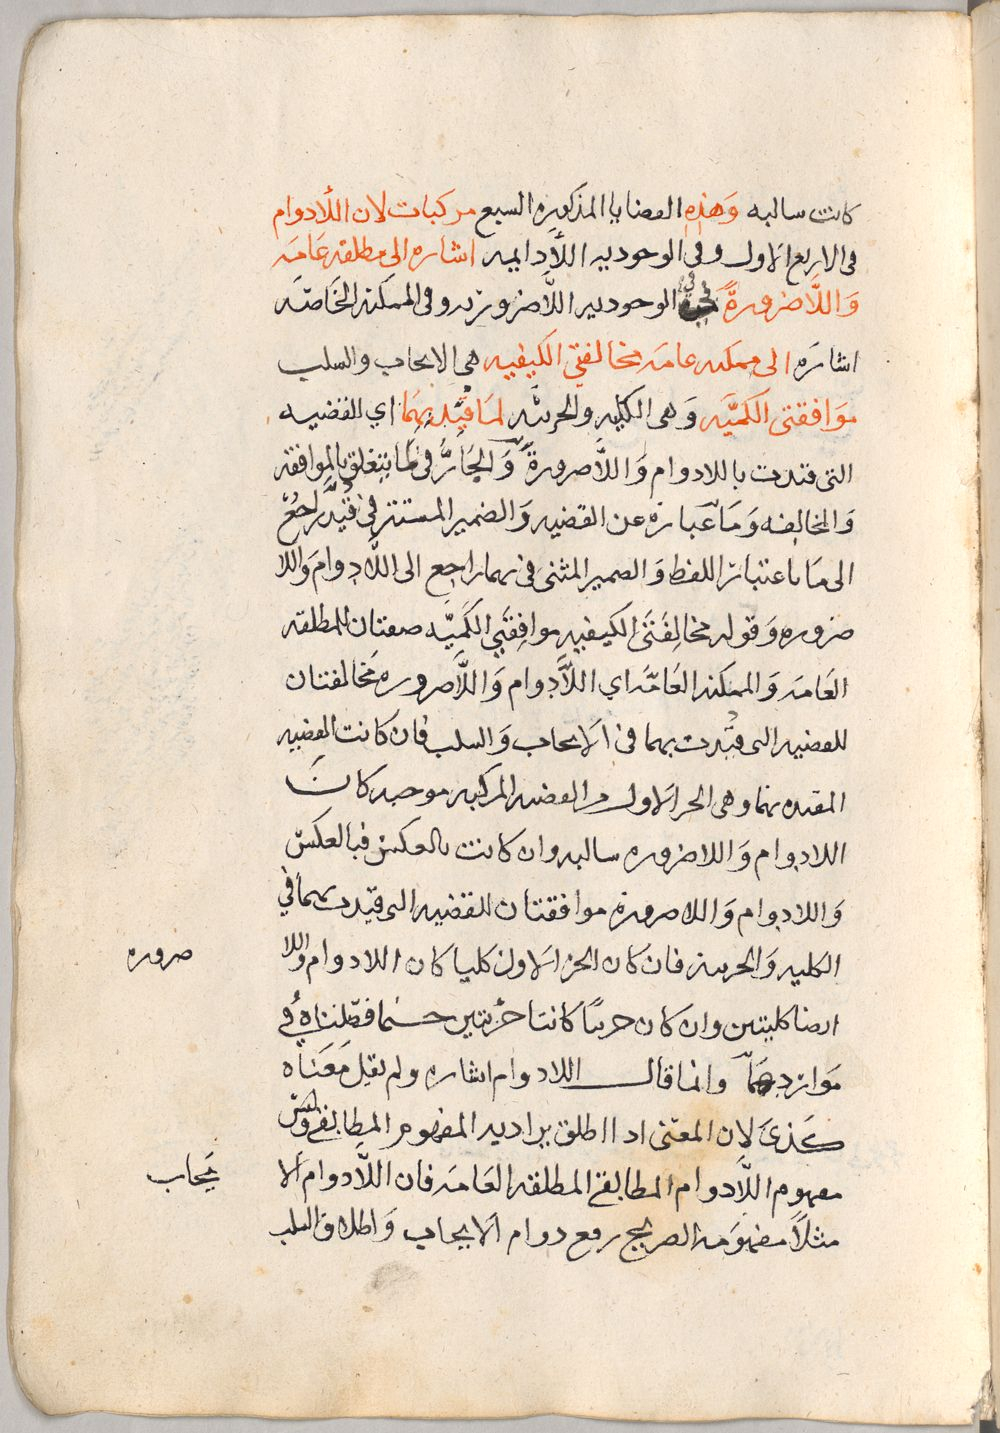 كانت سالبه وَهَذِهِ القضايا المذكوره السبع مركبات لان اللَّادوام
فى الاربع الاول وفى الوجوديه اللَّادايمه اشاره الى مطلقه عَامَه
وَاللَّاضرورةَ فى الوجوديه اللَّاضروريه وفى الممكنه الخَاصّه
اشارَه الى ممكنه عامه مخالفتي الكيفيه هى الايجاب والسلب
موَافقتى الكميَّه وَهى الكليه والجزئيه لمَا قُيِّد بِهمَا اي القضيه
التى قيّدت باللادوام وَاللَّاضرورة وَالجَارُّ فى لمَا يتعلق بالموافقه
وَالمخالفه وَمَا عبارة عن القضيه وَالضمير المستتر فِى قُيّد رَاجعٌ
الى مَا باعتبار اللفظ وَالضمير المثنى فى بهما راجع الى اللَّادوام وَاللا
ضروره وَقوله مخالِفَتَى الكيفيه موافِقتَي الكَميَّه صفتان للمطلقه
العَامه وَالممكنه العَامّه اي اللَّادوام وَاللَّاضروره مُخَالفتان
للقضيه التى قيِّدت بهما فى الَايجاب وَالسلب فان كانت القضيه
المقيده بهما وهى الجزؤ الاول من القضيه المركبه موجبه كانَ
اللادوام وَاللاضروره سالبه وان كانت بالعكس فبالعكس
وَاللادوام وَاللاضرورة موافقتان للقضيه التى قيّدت بهما في
الكليه وَالجزييه فان كان الجزؤ الَاول كليا كان اللادوام وَاللا
ضروره
ايضا كليتين وان كان جزييًا كانتا جزئيتين حسْما فصّلناهُ في
مَواردِهمَا وانما قال اللادوام اشاره ولم يقل مَعَناه
كَذىَ لان المعنى اذا اطلق يراد به المفهوم المطابقي وَليْسَ
مفهوم اللَّادوام المطابقي المطلقه العَامه فان اللَّادوام الا
يجاب
مثلاً مَفهُومه الصريح رفع دوام الَايجاب وَاطلاق السلب